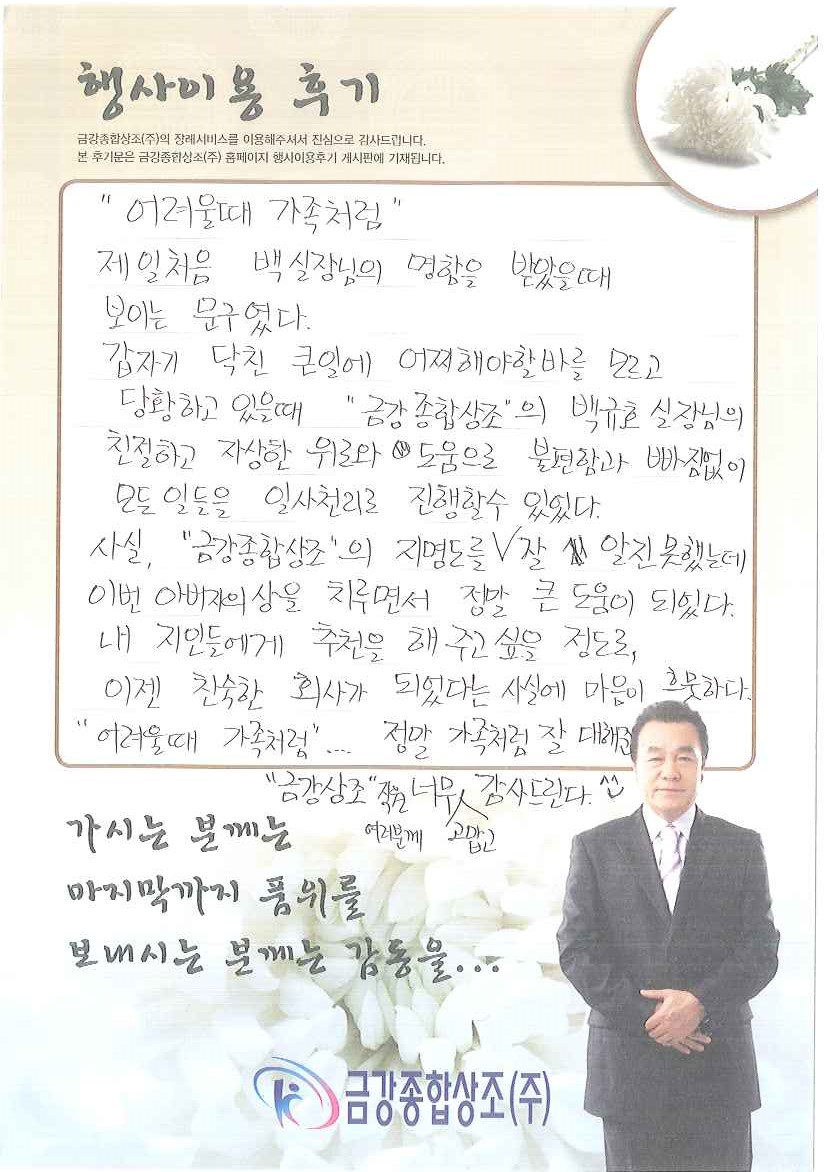 행사이용 후기
금강종합상조(주)의 장례서비스를 이용해주셔서 진심으로 감사드립니다.
본 후기문은 금강종합상조(주) 홈페이지 행사이용후기 게시판에 기재됩니다.
"어려울때 가족처럼"
제일처음 백실장님의 명함을 받았을때
보이는 문구였다.
갑자기 닥친 큰일에 어찌해야할바를 모르고
당황하고 있을때 "금강종합상조"의 백규호 실장님의
친절하고 자상한 위로와 도움으로 불편함과 빠짐없이
모든일들을 일사천리로 진행할수 있었다.
사실, "금강종합상조"의 지명도를 잘 알진못했는데
이번 아버지의상을 치루면서 정말 큰 도움이 되었다.
내 지인들에게 추천을 해주고싶을 정도로,
이젠 친숙한 회사가 되었다는 사실에 마음이 흐뭇하다.
"어려울때 가족처럼"... 정말 가족처럼 잘 대해준
"금강상조" 직원 너무 감사드린다. ^^
여러분께 고맙고
가시는 분께는
마지막까지 품위를
보내시는 분께는 감동을...
금강종합상조(주)